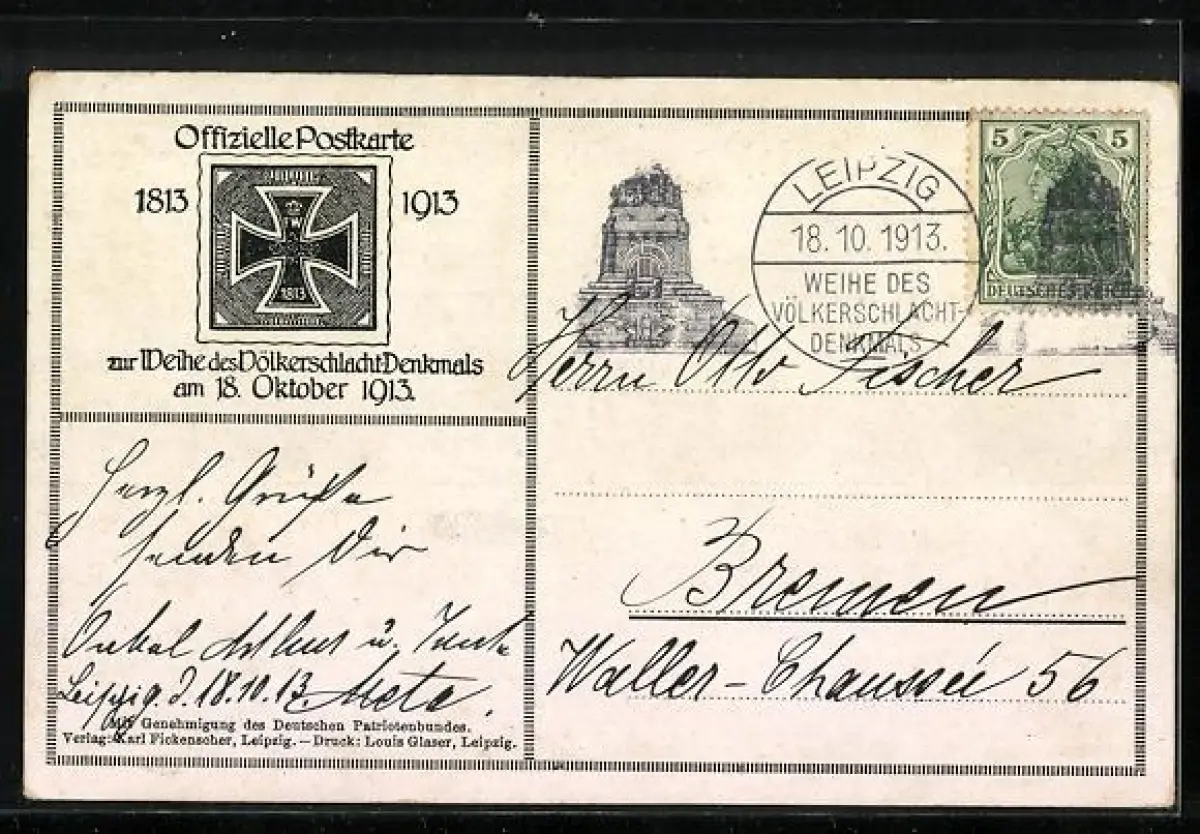 Offizielle Postkarte
1813 1913
FW
1813
zur Weihe des Völkerschlacht-Denkmals
am 18. Oktober 1913.
LEIPZIG
18.10.1913.
WEIHE DES
VÖLKERSCHLACHT-
DENKMALS
5 5
DEUTSCHES REICH
Herrn Otto Fischer
Bremen
Waller-Chaussee 56
Herzl. Grüße
senden Dir
Onkel Arthur u. Tante
Leipzig, d. 18.10.13. Meta.
Mit Genehmigung des Deutschen Patriotenbundes.
Verlag: Karl Fickenscher, Leipzig. — Druck: Louis Glaser, Leipzig.